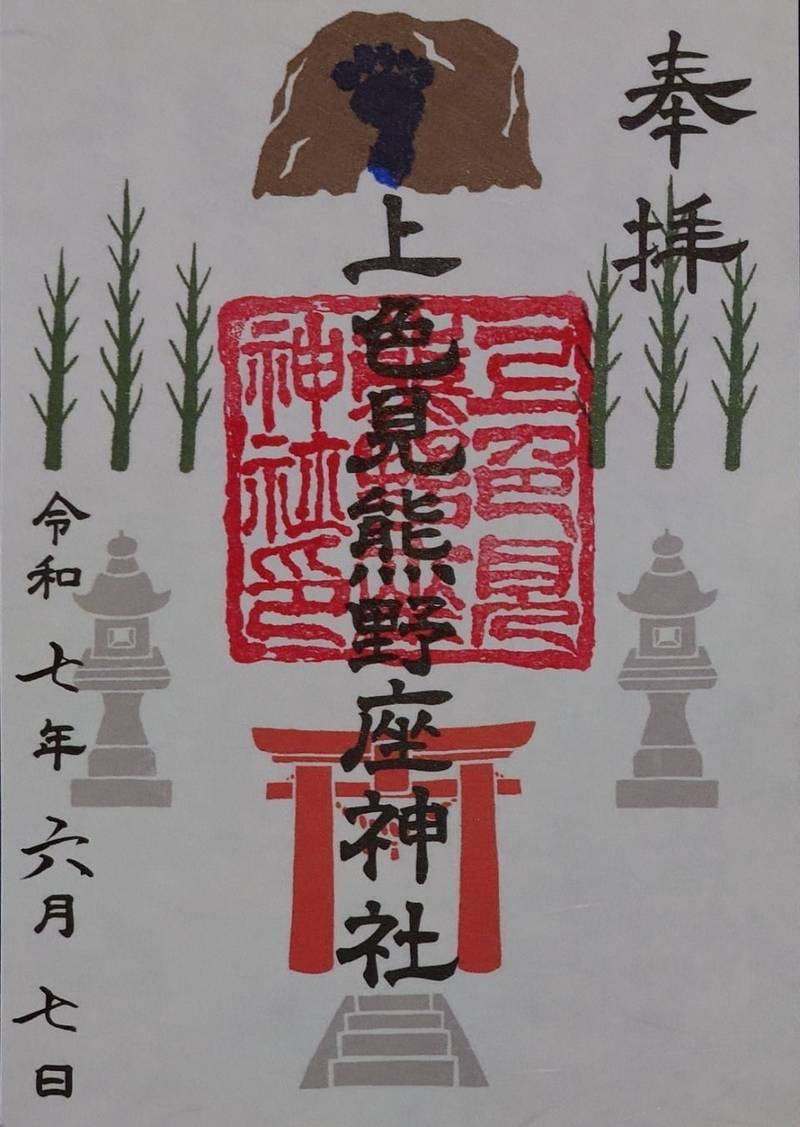 奉拝
上色見熊野座神社
上色見
熊野座
神社印
令和七年六月七日